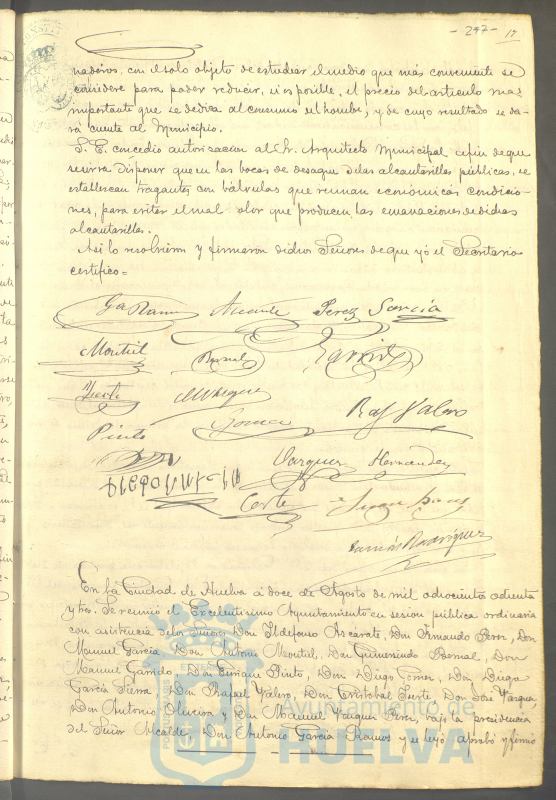 - 247 - 17
naderos, con el solo objeto de estudiar el medio que más conveniente se
considere para poder reducir, si es posible, el precio del artículo mas
importante que se dedica al consumo del hombre, y de cuyo resultado se da-
rá cuenta al Municipio.
S. E. concedio autorizacion al Sr. Arquitecto Municipal á fin de que
se sirva disponer que en las bocas de desague de las alcantarillas públicas, se
establezcan tragantes con bálvulas que reunan económicas condicio-
nes, para evitar el mal olor que producen las emanaciones de dichas
alcantarillas.
Asi lo resolvieron y firmaron dichos Señores de que yo el Secretario
certifico =
Ga Ramos Azcarate Perez Garcia
Montiel Bernal Garrido
Yerte Márquez
Pinto Gomez Raf Valero
Vazquez Hernandez
Ramón Rodriguez
En la Ciudad de Huelva á doce de Agosto de mil ochocientos ochenta
y tres. Se reunió el Excelentisimo Ayuntamiento en sesion pública ordinaria
con asistencia de los Señores Don Ildefonso Azcarate, Don Fernando Perez, Don
Manuel Garcia, Don Antonio Montiel, Don Gumersindo Bernal, Don
Manuel Garrido, Don Enrique Pinto, Don Diego Gomez, Don Diego
Garcia Sierra, Don Rafael Valero, Don Cristobal Don José Vazquez,
Don Antonio Oliveira y Don Manuel Vazquez Perez, bajo la presidencia
del Señor Alcalde, Don Antonio Garcia Ramos y se leyó, aprobó y firmó
Ayuntamiento de
HUELVA